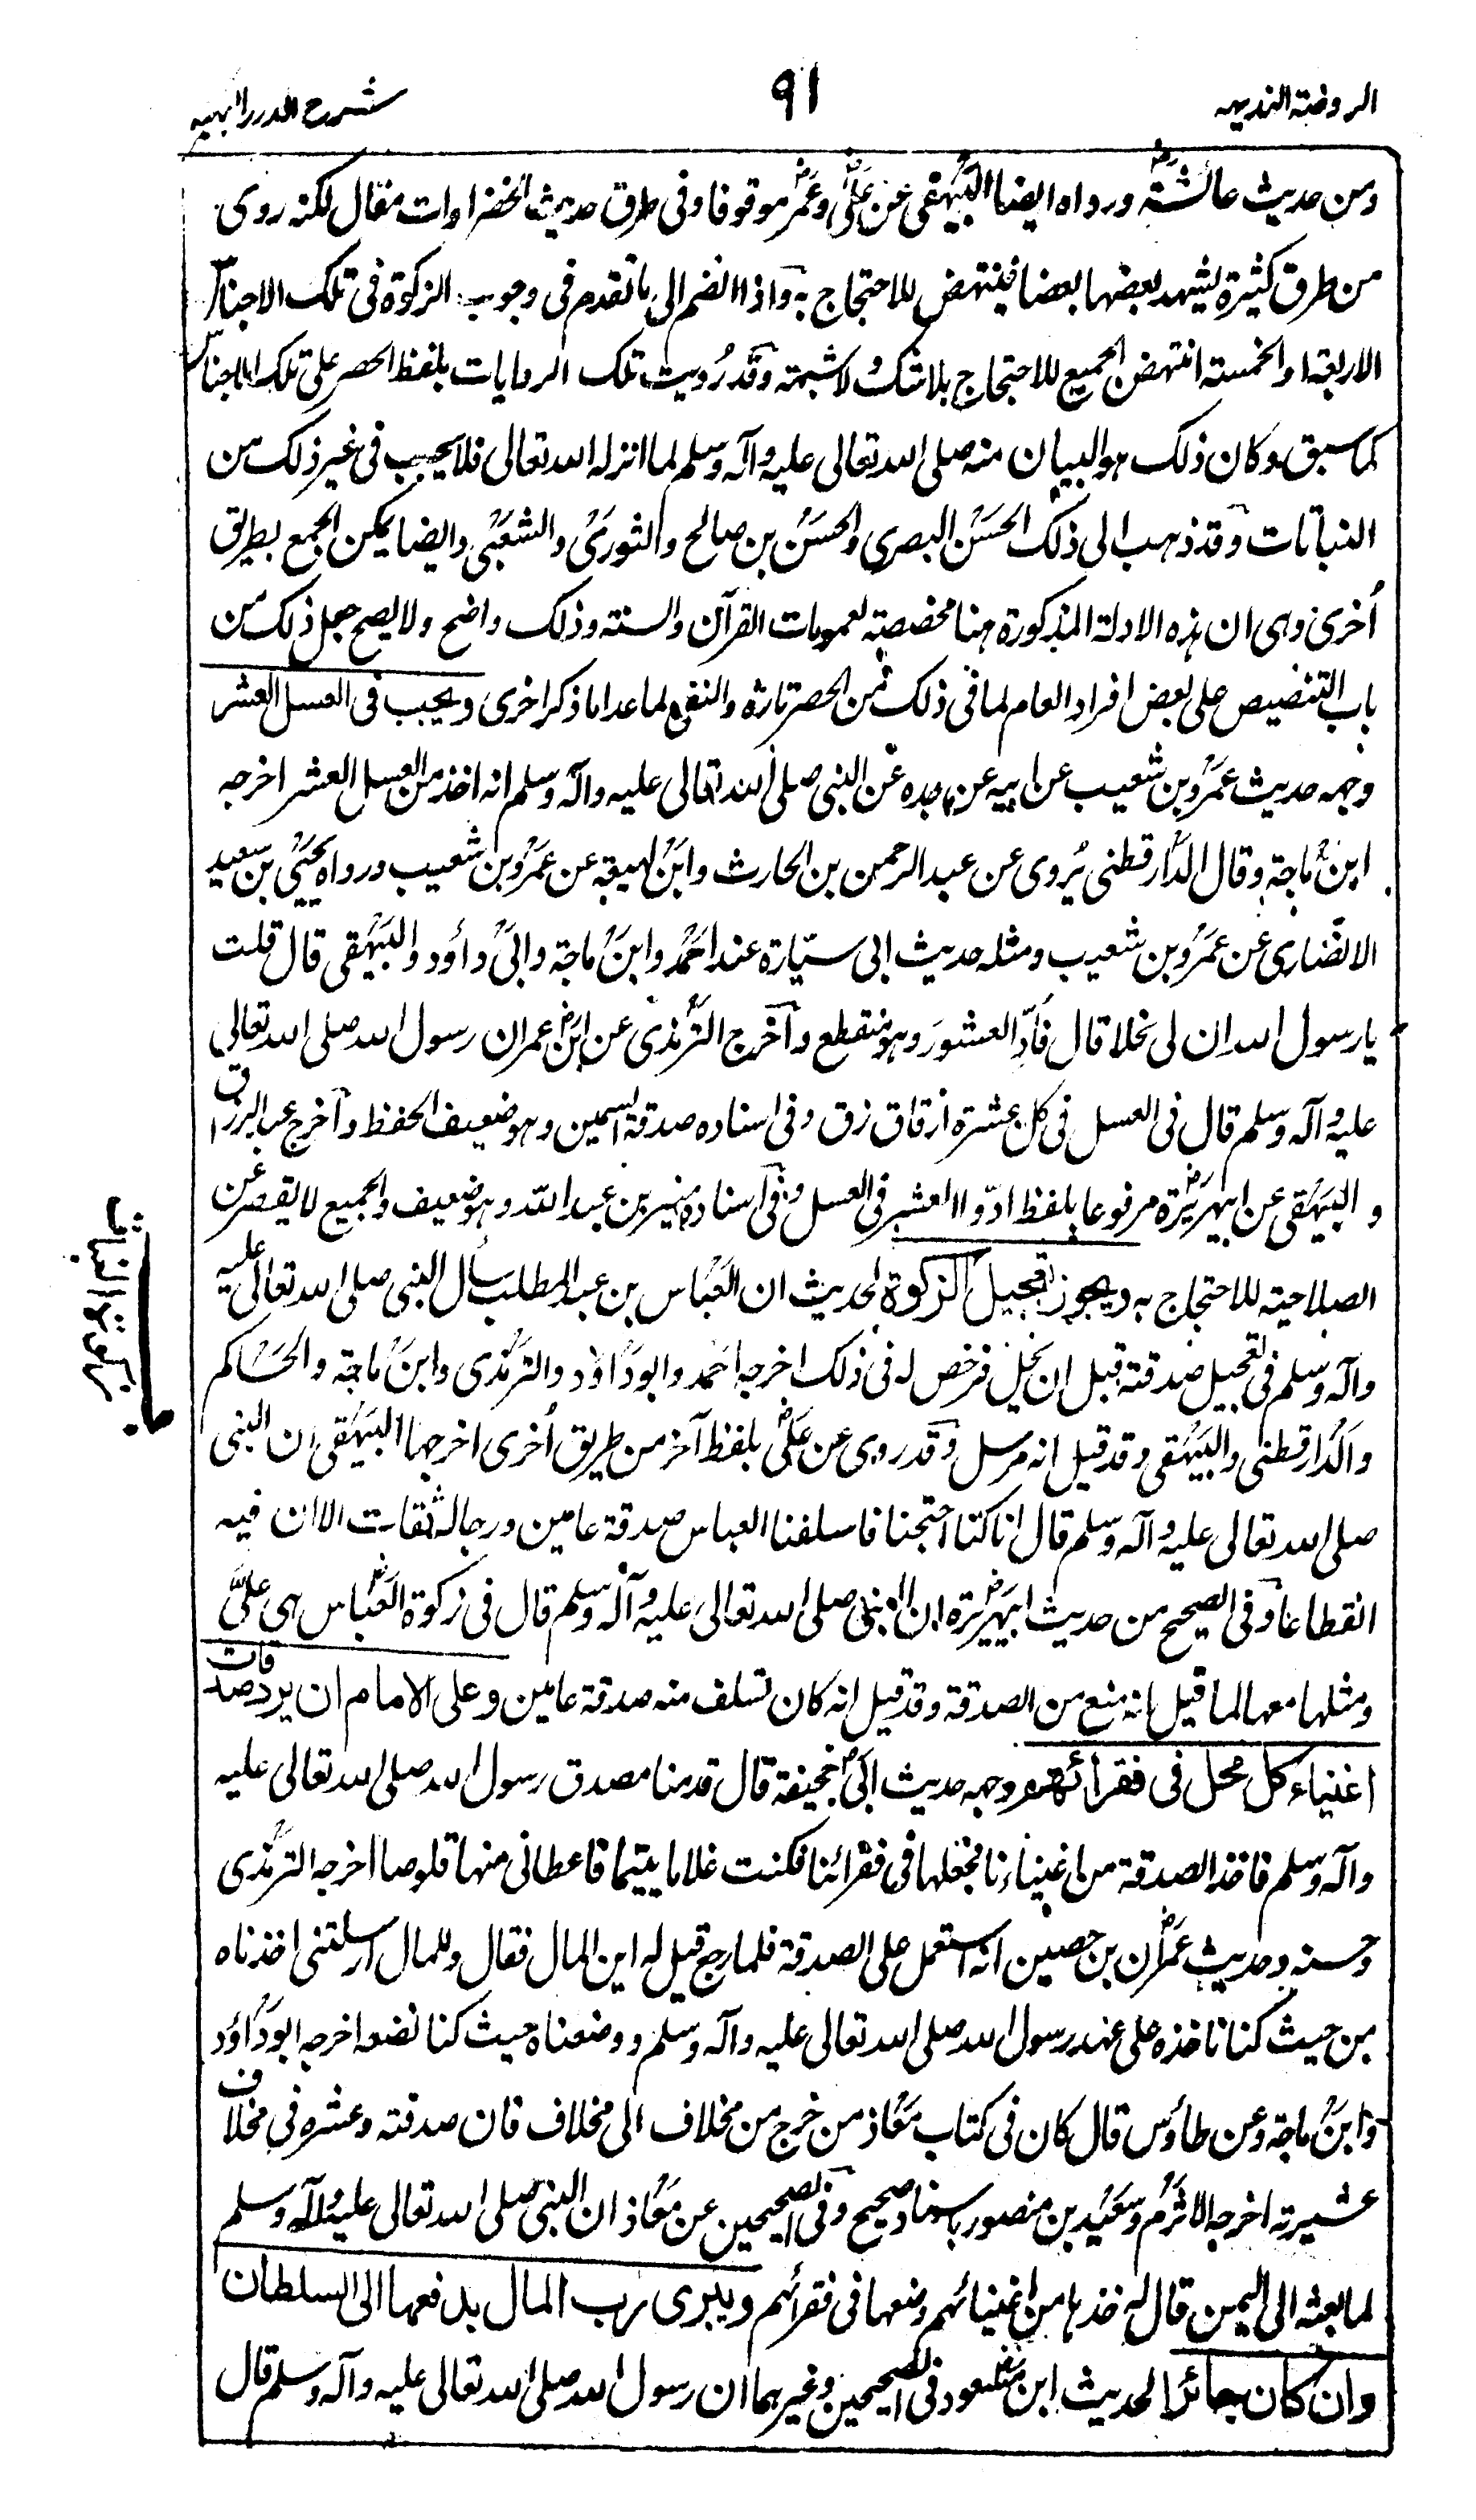 الروضة الندیہ
۹۱
شرح الدرر البہیہ
ومن حدیث عائشۃ ورواہ ایضا البیہقی عن علی وعمر موقوفا وفی طرق حدیث الخضراوات مقال لکنہ روی
من طرق کثیرۃ یشہد بعضہا بعضا فینتہض للاحتجاج بہ واذا انضم الی ما تقدم فی وجوب الزکوۃ فی تلک الاجناس
الاربعۃ او الخمسۃ انتہض الجمیع للاحتجاج بلا شک ولا شبہۃ وقد رُویت تلک الروایات بلفظ الحصر علی تلک الاجناس
کما سبق وکان ذلک ہو البیان منہ صلی اللہ تعالی علیہ وآلہ وسلم لما انزلہ اللہ تعالی فلا یجب فی غیر ذلک من
النباتات وقد ذہب الی ذلک الحسن البصری والحسن بن صالح والثوری والشعبی وایضا یمکن الجمع بطریق
اُخری وہی ان ہذہ الادلۃ المذکورۃ ہنا مخصصۃ لعمومات القرآن والسنۃ وذلک واضح ولا یصح جعل ذلک من
باب التنصیص علی بعض افراد العام لما فی ذلک من الحصر تارۃ والنفی لما عدا ما ذکر اخری ویجب فی العسل العشر
وجہہ حدیث عمرو بن شعیب عن ابیہ عن جدہ عن النبی صلی اللہ تعالی علیہ وآلہ وسلم انہ اخذ من العسل العشر اخرجہ
ابن ماجۃ وقال الدارقطنی یُروی عن عبد الرحمن بن الحارث وابن لہیعۃ عن عمرو بن شعیب ورواہ یحیی بن سعید
الانصاری عن عمرو بن شعیب ومثلہ حدیث ابی سیّارۃ عند احمد وابن ماجۃ وابی داؤد والبیہقی قال قلت
یا رسول اللہ ان لی نحلا قال فأدِّ العشورَ وہو منقطع وأخرج الترمذی عن ابن عمر ان رسول اللہ صلی اللہ تعالی
علیہ وآلہ وسلم قال فی العسل فی کل عشرۃ ازقاق زق وفی اسنادہ صدقۃ السمین وہو ضعیف الحفظ وأخرج عبد الرزاق
والبیہقی عن ابی ہریرۃ مرفوعا بلفظ ادّوا العشر فی العسل وفی اسنادہ منیر بن عبد اللہ وہو ضعیف والجمیع لا یقصر عن
الصلاحیۃ للاحتجاج بہ ویجوز تعجیل الزکوۃ لحدیث ان العباس بن عبد المطلب سأل النبی صلی اللہ تعالی علیہ
وآلہ وسلم فی تعجیل صدقتہ قبل ان تحل فرخص لہ فی ذلک اخرجہ احمد وابو داؤد والترمذی وابن ماجۃ والحاکم
والدارقطنی والبیہقی وقد قیل انہ مرسل وقد روی عن علی بلفظ آخر من طریق اُخری اخرجہا البیہقی ان النبی
صلی اللہ تعالی علیہ وآلہ وسلم قال انا کنا احتجنا فاسلفنا العباس صدقۃ عامین ورجالہ ثقات الا ان فیہ
انقطاعا وفی الصحیح من حدیث ابی ہریرۃ ان النبی صلی اللہ تعالی علیہ وآلہ وسلم قال فی زکوۃ العباس ہی علیَّ
ومثلہا معہا لما قیل انہ منع من الصدقۃ وقد قیل انہ کان تسلف منہ صدقۃ عامین وعلی الامام ان یرد صدقات
اغنیاء کل محل فی فقرائہم وجہہ حدیث ابی جحیفۃ قال قدم علینا مصدق رسول اللہ صلی اللہ تعالی علیہ
وآلہ وسلم فاخذ الصدقۃ من اغنیاءنا فجعلہا فی فقرائنا فکنت غلاما یتیما فاعطانی منہا قلوصا اخرجہ الترمذی
وحسنہ وحدیث عمران بن حصین انہ استعمل علی الصدقۃ فلما رجع قیل لہ این المال فقال وللمال ارسلتنی اخذناہ
من حیث کنا ناخذہ علی عہد رسول اللہ صلی اللہ تعالی علیہ وآلہ وسلم ووضعناہ حیث کنا نضعہ اخرجہ ابو داؤد
وابن ماجۃ وعن طاؤس قال کان فی کتاب معاذ من خرج من مخلاف الی مخلاف فان صدقتہ وعشرہ فی مخلاف
عشیرتہ اخرجہ الاثرم وسعید بن منصور باسناد صحیح وفی الصحیحین عن معاذ ان النبی صلی اللہ تعالی علیہ وآلہ وسلم
لما بعثہ الی الیمن قال لہ خذہا من اغنیائہم وضعہا فی فقرائہم ویبری رب المال بدفعہا الی السلطان
وان کان جائرا لحدیث ابن مسعود فی الصحیحین وغیرہما ان رسول اللہ صلی اللہ تعالی علیہ وآلہ وسلم قال
باب زکوۃ النبات